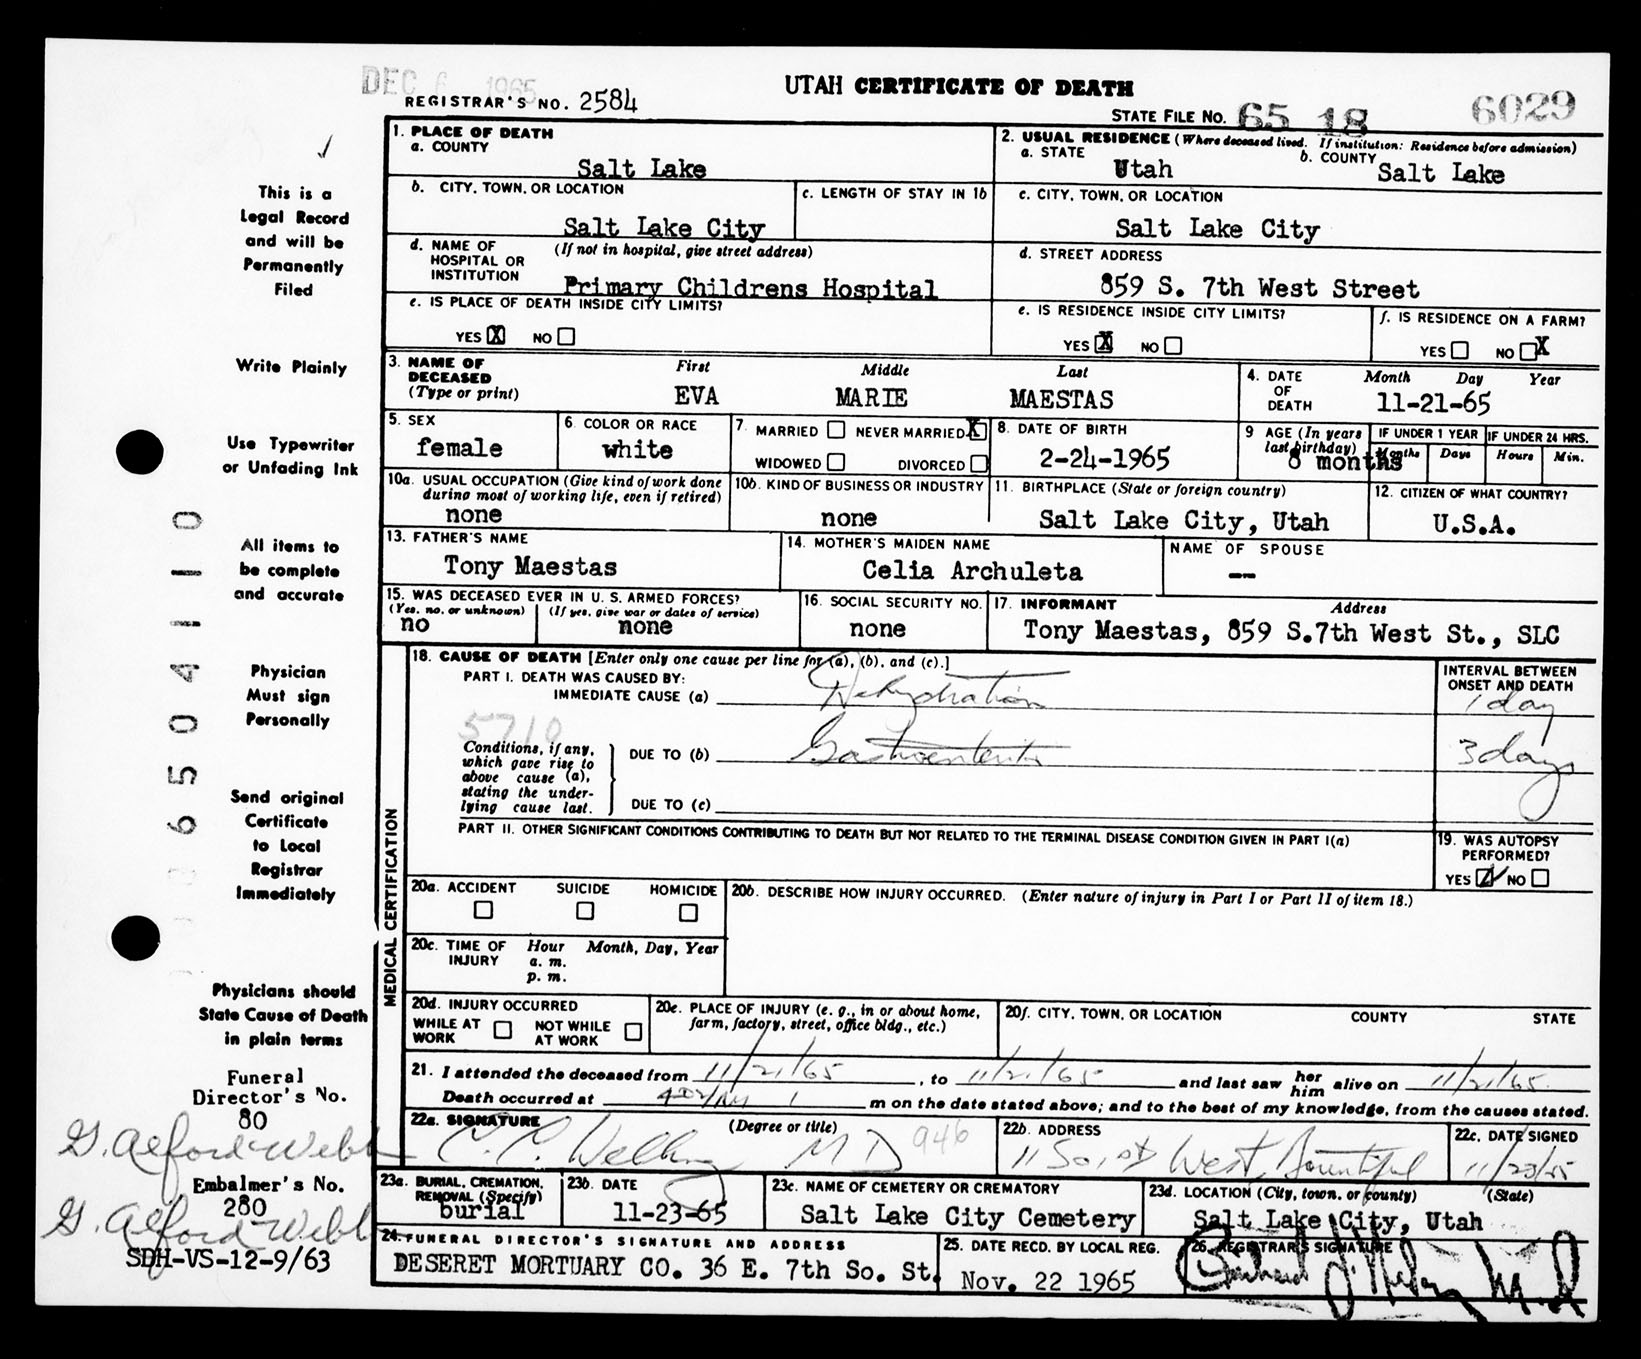 DEC 6 1965
UTAH CERTIFICATE OF DEATH
REGISTRAR'S NO. 2584
STATE FILE NO. 65 18 6029
1. PLACE OF DEATH
a. COUNTY
Salt Lake
2. USUAL RESIDENCE (Where deceased lived. If institution: Residence before admission)
a. STATE Utah b. COUNTY Salt Lake
b. CITY, TOWN, OR LOCATION
Salt Lake City
c. LENGTH OF STAY IN 1b
c. CITY, TOWN, OR LOCATION
Salt Lake City
d. NAME OF HOSPITAL OR INSTITUTION (If not in hospital, give street address)
Primary Childrens Hospital
d. STREET ADDRESS
859 S. 7th West Street
e. IS PLACE OF DEATH INSIDE CITY LIMITS?
YES X NO
e. IS RESIDENCE INSIDE CITY LIMITS?
YES X NO
f. IS RESIDENCE ON A FARM?
YES NO X
3. NAME OF DECEASED (Type or print)
First Middle Last
EVA MARIE MAESTAS
4. DATE OF DEATH
Month Day Year
11-21-65
5. SEX
female
6. COLOR OR RACE
white
7. MARRIED NEVER MARRIED X
WIDOWED DIVORCED
8. DATE OF BIRTH
2-24-1965
9 AGE (In years last birthday)
8 months
IF UNDER 1 YEAR IF UNDER 24 HRS.
Months Days Hours Min.
10a. USUAL OCCUPATION (Give kind of work done during most of working life, even if retired)
none
10b. KIND OF BUSINESS OR INDUSTRY
none
11. BIRTHPLACE (State or foreign country)
Salt Lake City, Utah
12. CITIZEN OF WHAT COUNTRY?
U.S.A.
13. FATHER'S NAME
Tony Maestas
14. MOTHER'S MAIDEN NAME
Celia Archuleta
NAME OF SPOUSE
--
15. WAS DECEASED EVER IN U.S. ARMED FORCES?
(Yes, no, or unknown) (If yes, give war or dates of service)
no none
16. SOCIAL SECURITY NO.
none
17. INFORMANT Address
Tony Maestas, 859 S.7th West St., SLC
18. CAUSE OF DEATH [Enter only one cause per line for (a), (b), and (c).]
PART I. DEATH WAS CAUSED BY:
IMMEDIATE CAUSE (a) Dehydration
INTERVAL BETWEEN ONSET AND DEATH
1 day
5710
Conditions, if any, which gave rise to above cause (a), stating the underlying cause last.
DUE TO (b) Gastroenteritis
3 days
DUE TO (c)
PART II. OTHER SIGNIFICANT CONDITIONS CONTRIBUTING TO DEATH BUT NOT RELATED TO THE TERMINAL DISEASE CONDITION GIVEN IN PART I(a)
19. WAS AUTOPSY PERFORMED?
YES NO
MEDICAL CERTIFICATION
20a. ACCIDENT SUICIDE HOMICIDE
20b. DESCRIBE HOW INJURY OCCURRED. (Enter nature of injury in Part I or Part II of item 18.)
20c. TIME OF INJURY Hour Month, Day, Year
a. m.
p. m.
20d. INJURY OCCURRED
WHILE AT WORK NOT WHILE AT WORK
20e. PLACE OF INJURY (e. g., in or about home, farm, factory, street, office bldg., etc.)
20f. CITY, TOWN, OR LOCATION COUNTY STATE
21. I attended the deceased from 11/21/65, to 11/21/65 and last saw her him alive on 11/21/65.
Death occurred at m on the date stated above; and to the best of my knowledge, from the causes stated.
22a. SIGNATURE (Degree or title)
M D 946
22b. ADDRESS
11 So. 1st West, Bountiful
22c. DATE SIGNED
11/23/65
23a. BURIAL, CREMATION, REMOVAL (Specify)
burial
23b. DATE
11-23-65
23c. NAME OF CEMETERY OR CREMATORY
Salt Lake City Cemetery
23d. LOCATION (City, town, or county) (State)
Salt Lake City, Utah
24. FUNERAL DIRECTOR'S SIGNATURE AND ADDRESS
DESERET MORTUARY CO. 36 E. 7th So. St.
25. DATE RECD. BY LOCAL REG.
Nov. 22 1965
26. REGISTRAR'S SIGNATURE
This is a
Legal Record
and will be
Permanently
Filed
Write Plainly
Use Typewriter
or Unfading Ink
All items to
be complete
and accurate
Physician
Must sign
Personally
Send original
Certificate
to Local
Registrar
Immediately
Physicians should
State Cause of Death
in plain terms
Funeral
Director's No.
80
G. Alford Webb
Embalmer's No.
280
G. Alford Webb
SDH-VS-12-9/63
6504110